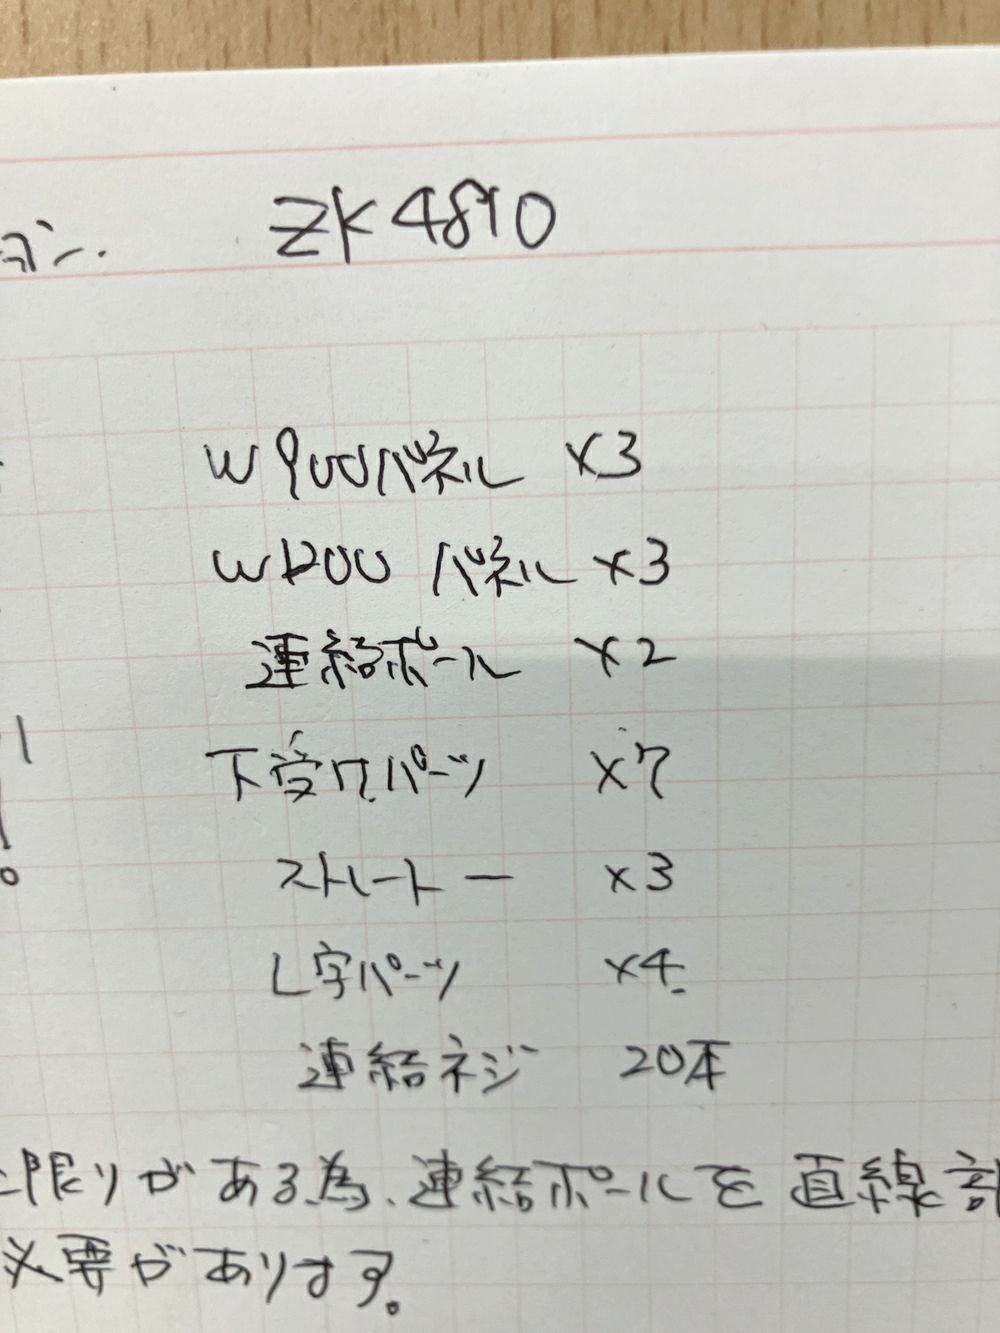 ZK4890
W900パネル ×3
W1200 パネル ×3
連結ポール ×2
下受けパーツ ×7
ストレートー ×3
L字パーツ ×4
連結ネジ 20本
限りがある為、連結ポールを直線部
必要があります。